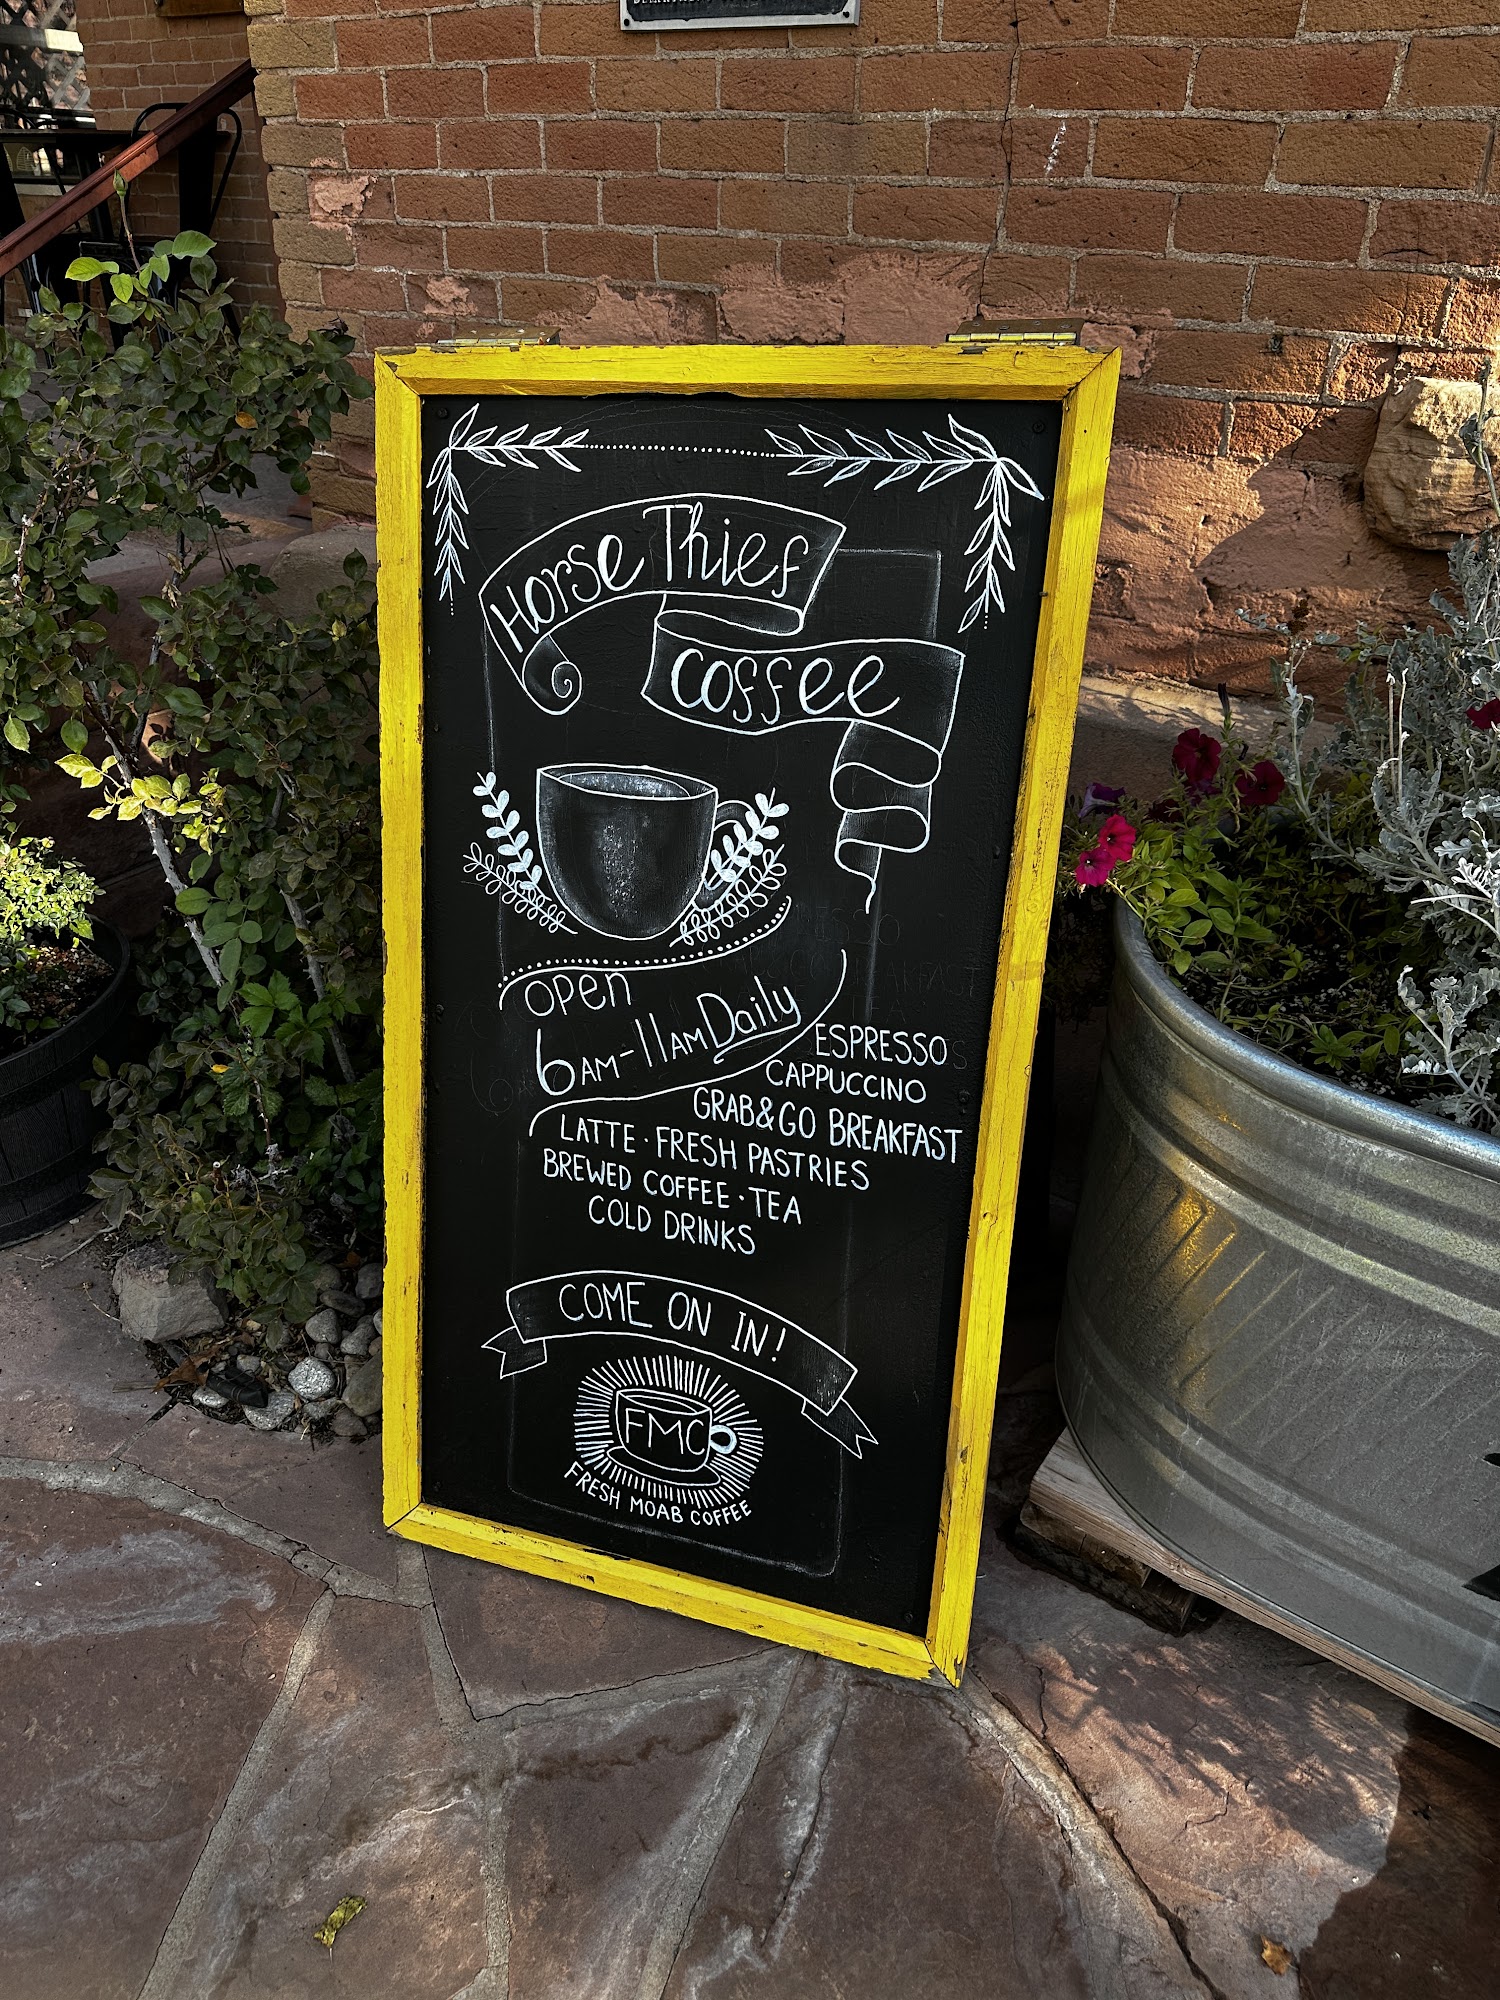 Horse Thief
Coffee
Open
6AM-11AM Daily
ESPRESSO
CAPPUCCINO
GRAB&GO BREAKFAST
LATTE · FRESH PASTRIES
BREWED COFFEE · TEA
COLD DRINKS
COME ON IN!
FMC
FRESH MOAB COFFEE